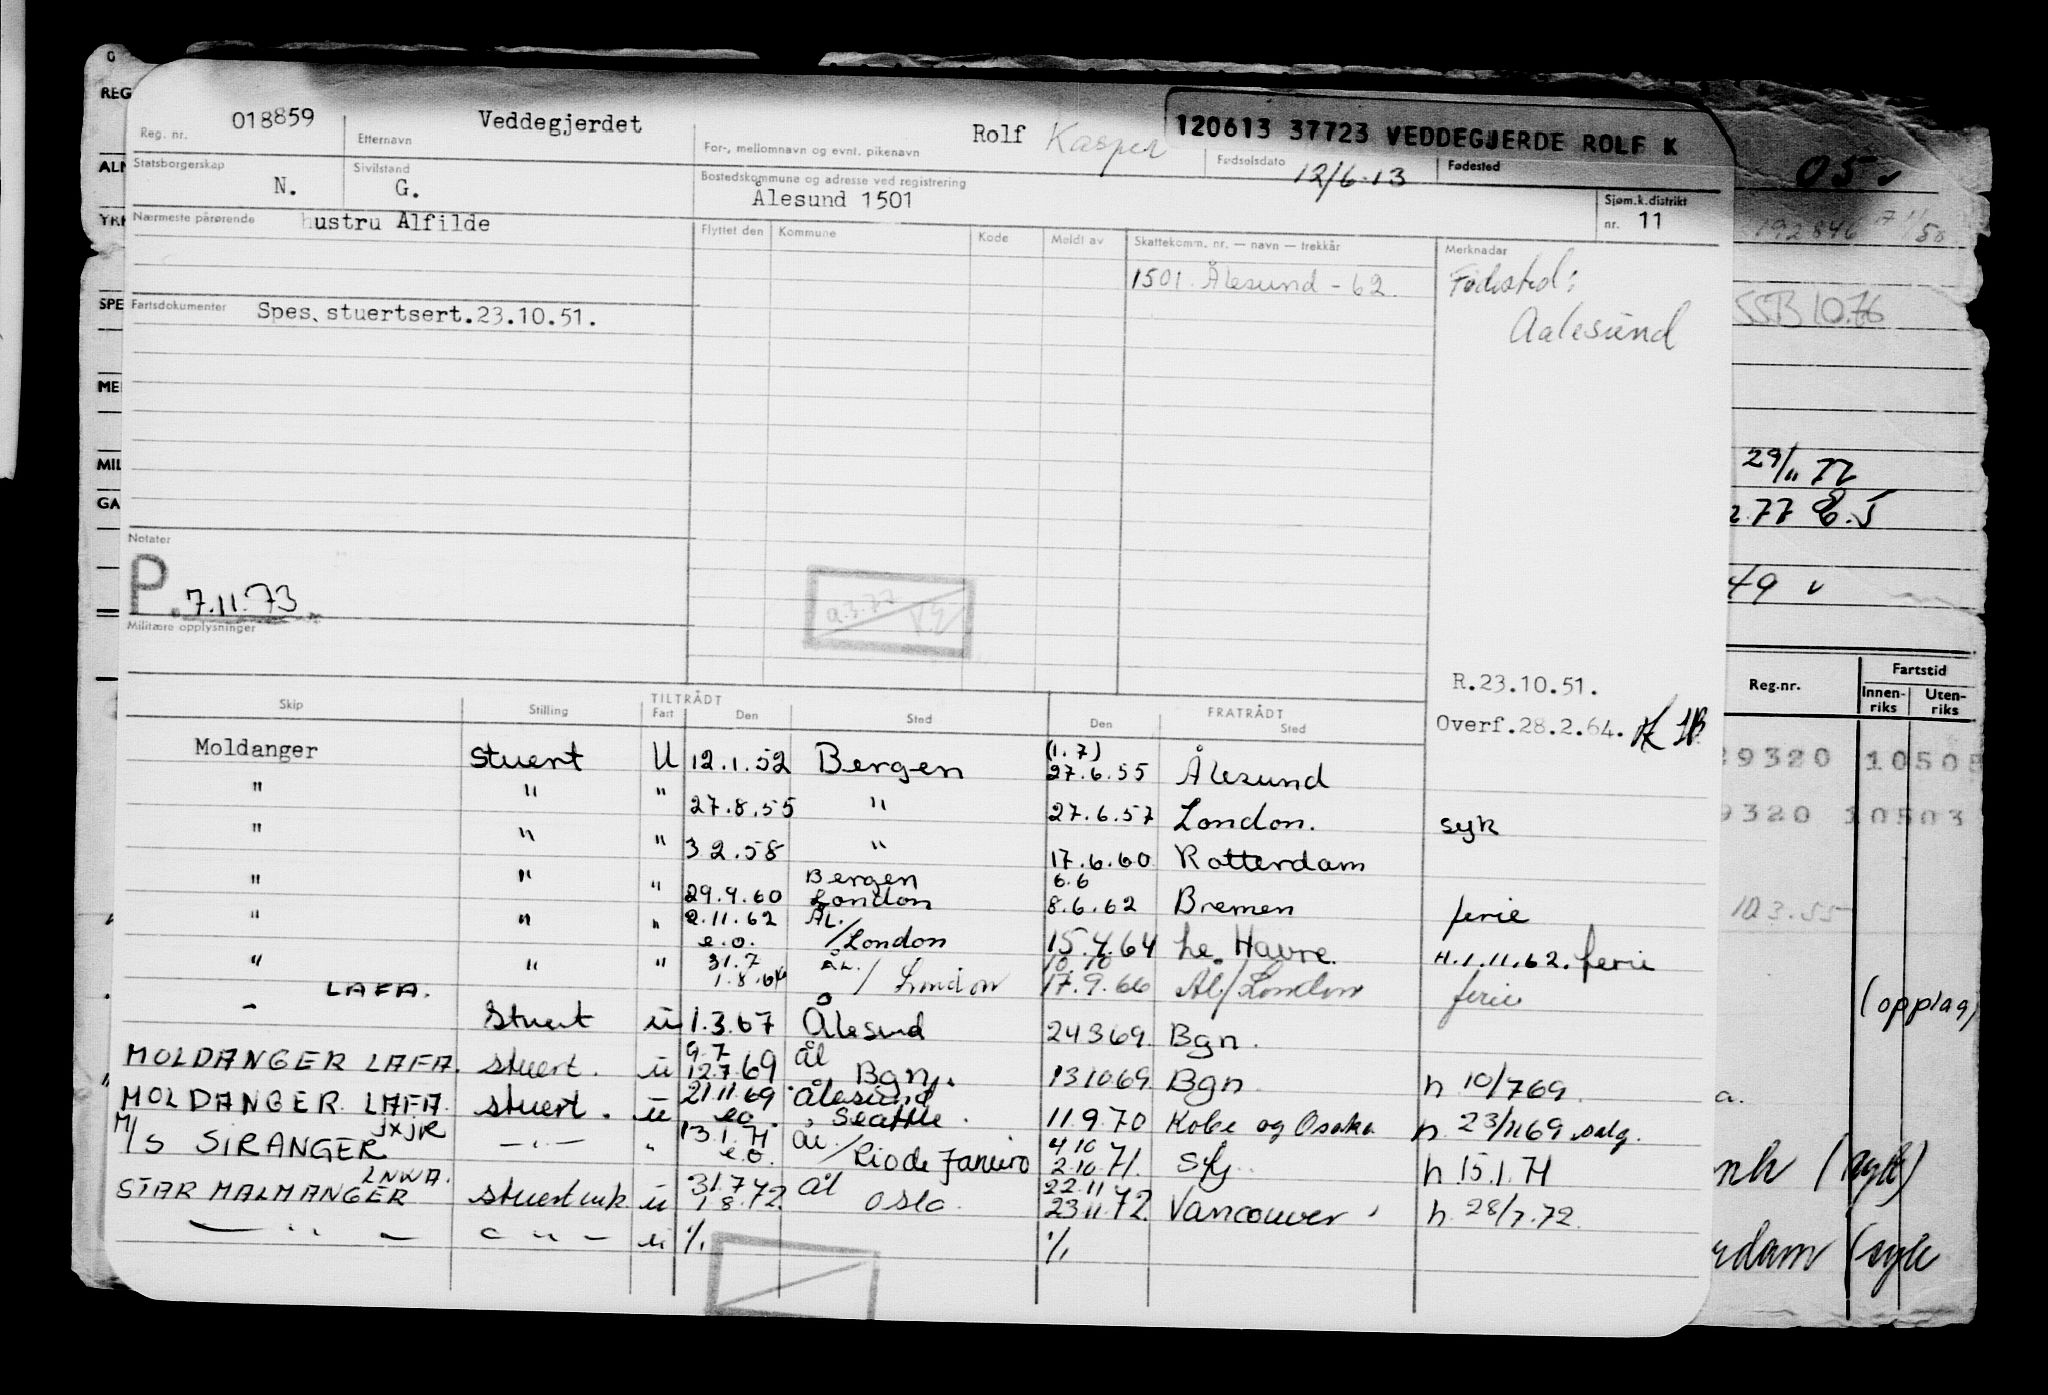 018859 Veddegjerdet Rolf Kasper 120613 37723 VEDDEGJERDE ROLF K
Reg. nr. Etternavn For-, mellomnavn og evnt. pikenavn Fødselsdato 12/6-13 Fødested
Statsborgerskap N. Sivilstand G. Bostedskommune og adresse ved registrering Ålesund 1501 Sjøm.k.distrikt nr. 11
Nærmeste pårørende hustru Alfilde
Flyttet den Kommune Kode Meldt av Skattekomm. nr. — navn — trekkår Merknadar
1501. Ålesund - 62 Fødested:
Aalesund
Fartsdokumenter Spes. stuertsert.23.10.51.
Notater
P. 7.11.73
Militære opplysninger
R.23.10.51.
Overf.28.2.64.
TILTRÅDT FRATRÅDT
Skip Stilling Fart Den Sted Den Sted
Moldanger Stuert U 12.1.52 Bergen (1.7) 27.6.55 Ålesund
" " " 27.8.55 " 27.6.57 London. syk
" " " 3.2.58 " 17.6.60 Rotterdam
" " " 29.9.60 Bergen London 6.6 8.6.62 Bremen ferie
" " " 2.11.62 e.o. ÅL./London 15.4.64 Le Havre. H.1.11.62. ferie
" " " 31.7 1.8.64 ÅL./London 10.10 17.9.66 Ål/London ferie
- LAFA. Stuert u 1.3.67 Ålesund 24369. Bgn.
MOLDANGER LAFA. stuert. u 9.7 12.7.69 ål Bgn. 131069. Bgn. h 10/769.
MOLDANGER LAFA stuert. u 21.11.69 eo. Ålesund Seattle. 11.9.70 Kobe og Osaka h. 23/1169 salg.
M/S SIRANGER JXJR —"— " 13.1.71 e.o. ål./Rio de Janeiro 4.10 2.10.71. Sfj. h 15.1.71
STAR MALMANGER LNWA. u 31.7.72 1.8.72. ål Oslo. 22.11 23.11.72. Vancouver h. 28/7.72.
— " — — " — u %. %.
REG
ALM
YRK
SPE
ME
MIL
GA
05
192846
SSB 10.76
29/11 72
.77
49
Reg.nr. Fartstid
Innen-riks Uten-riks
9320 10503
(opplag)
(syk)
rdam (syk